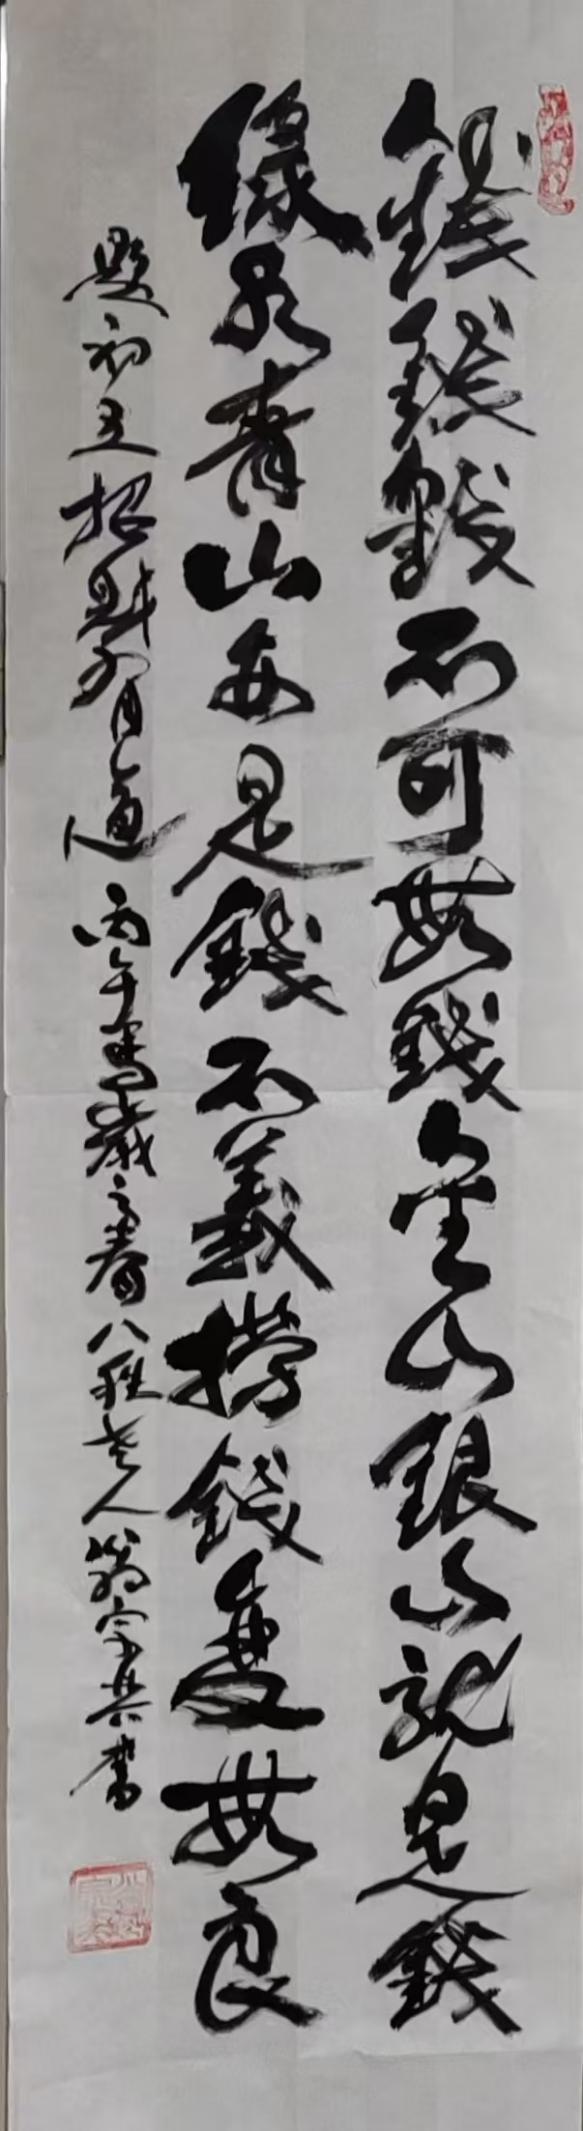 錢錢錢不可無錢金山銀山就是錢
緑水青山亦是錢不義撈錢變無良
題初五招財有道 丙午馬歲之春八秩老人翁宗其書